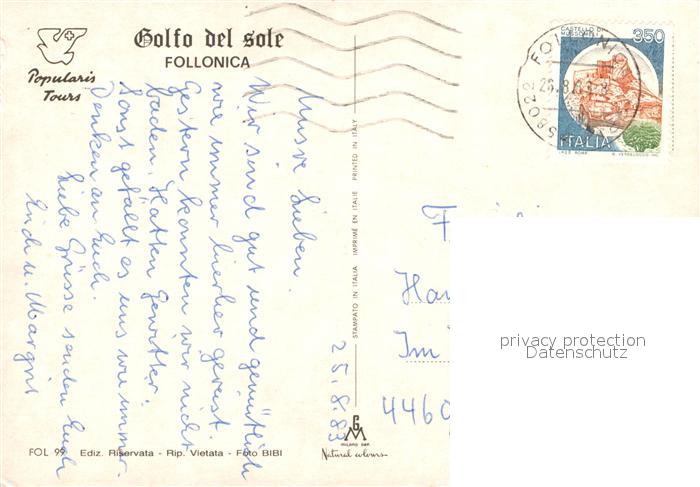 Golfo del sole
FOLLONICA
Popularis
Tours
Unsre Lieben.
Wir sind gut und gemütlich
wie immer hierher gereist.
Gestern konnten wir nicht
baden. Hatten Gewitter.
Sonst gefällt es uns wie immer.
Denken an Euch.
Liebe Grüsse senden Euch
Erich u. Margrit
25.8.83
STAMPATO IN ITALIA IMPRIMÉ EN ITALIE PRINTED IN ITALY
CASTELLO DI
350
ITALIA
58022
Im
4460
privacy protection
Datenschutz
MILANO
Natural colours
FOL 99 Ediz. Riservata - Rip. Vietata - Foto BIBI